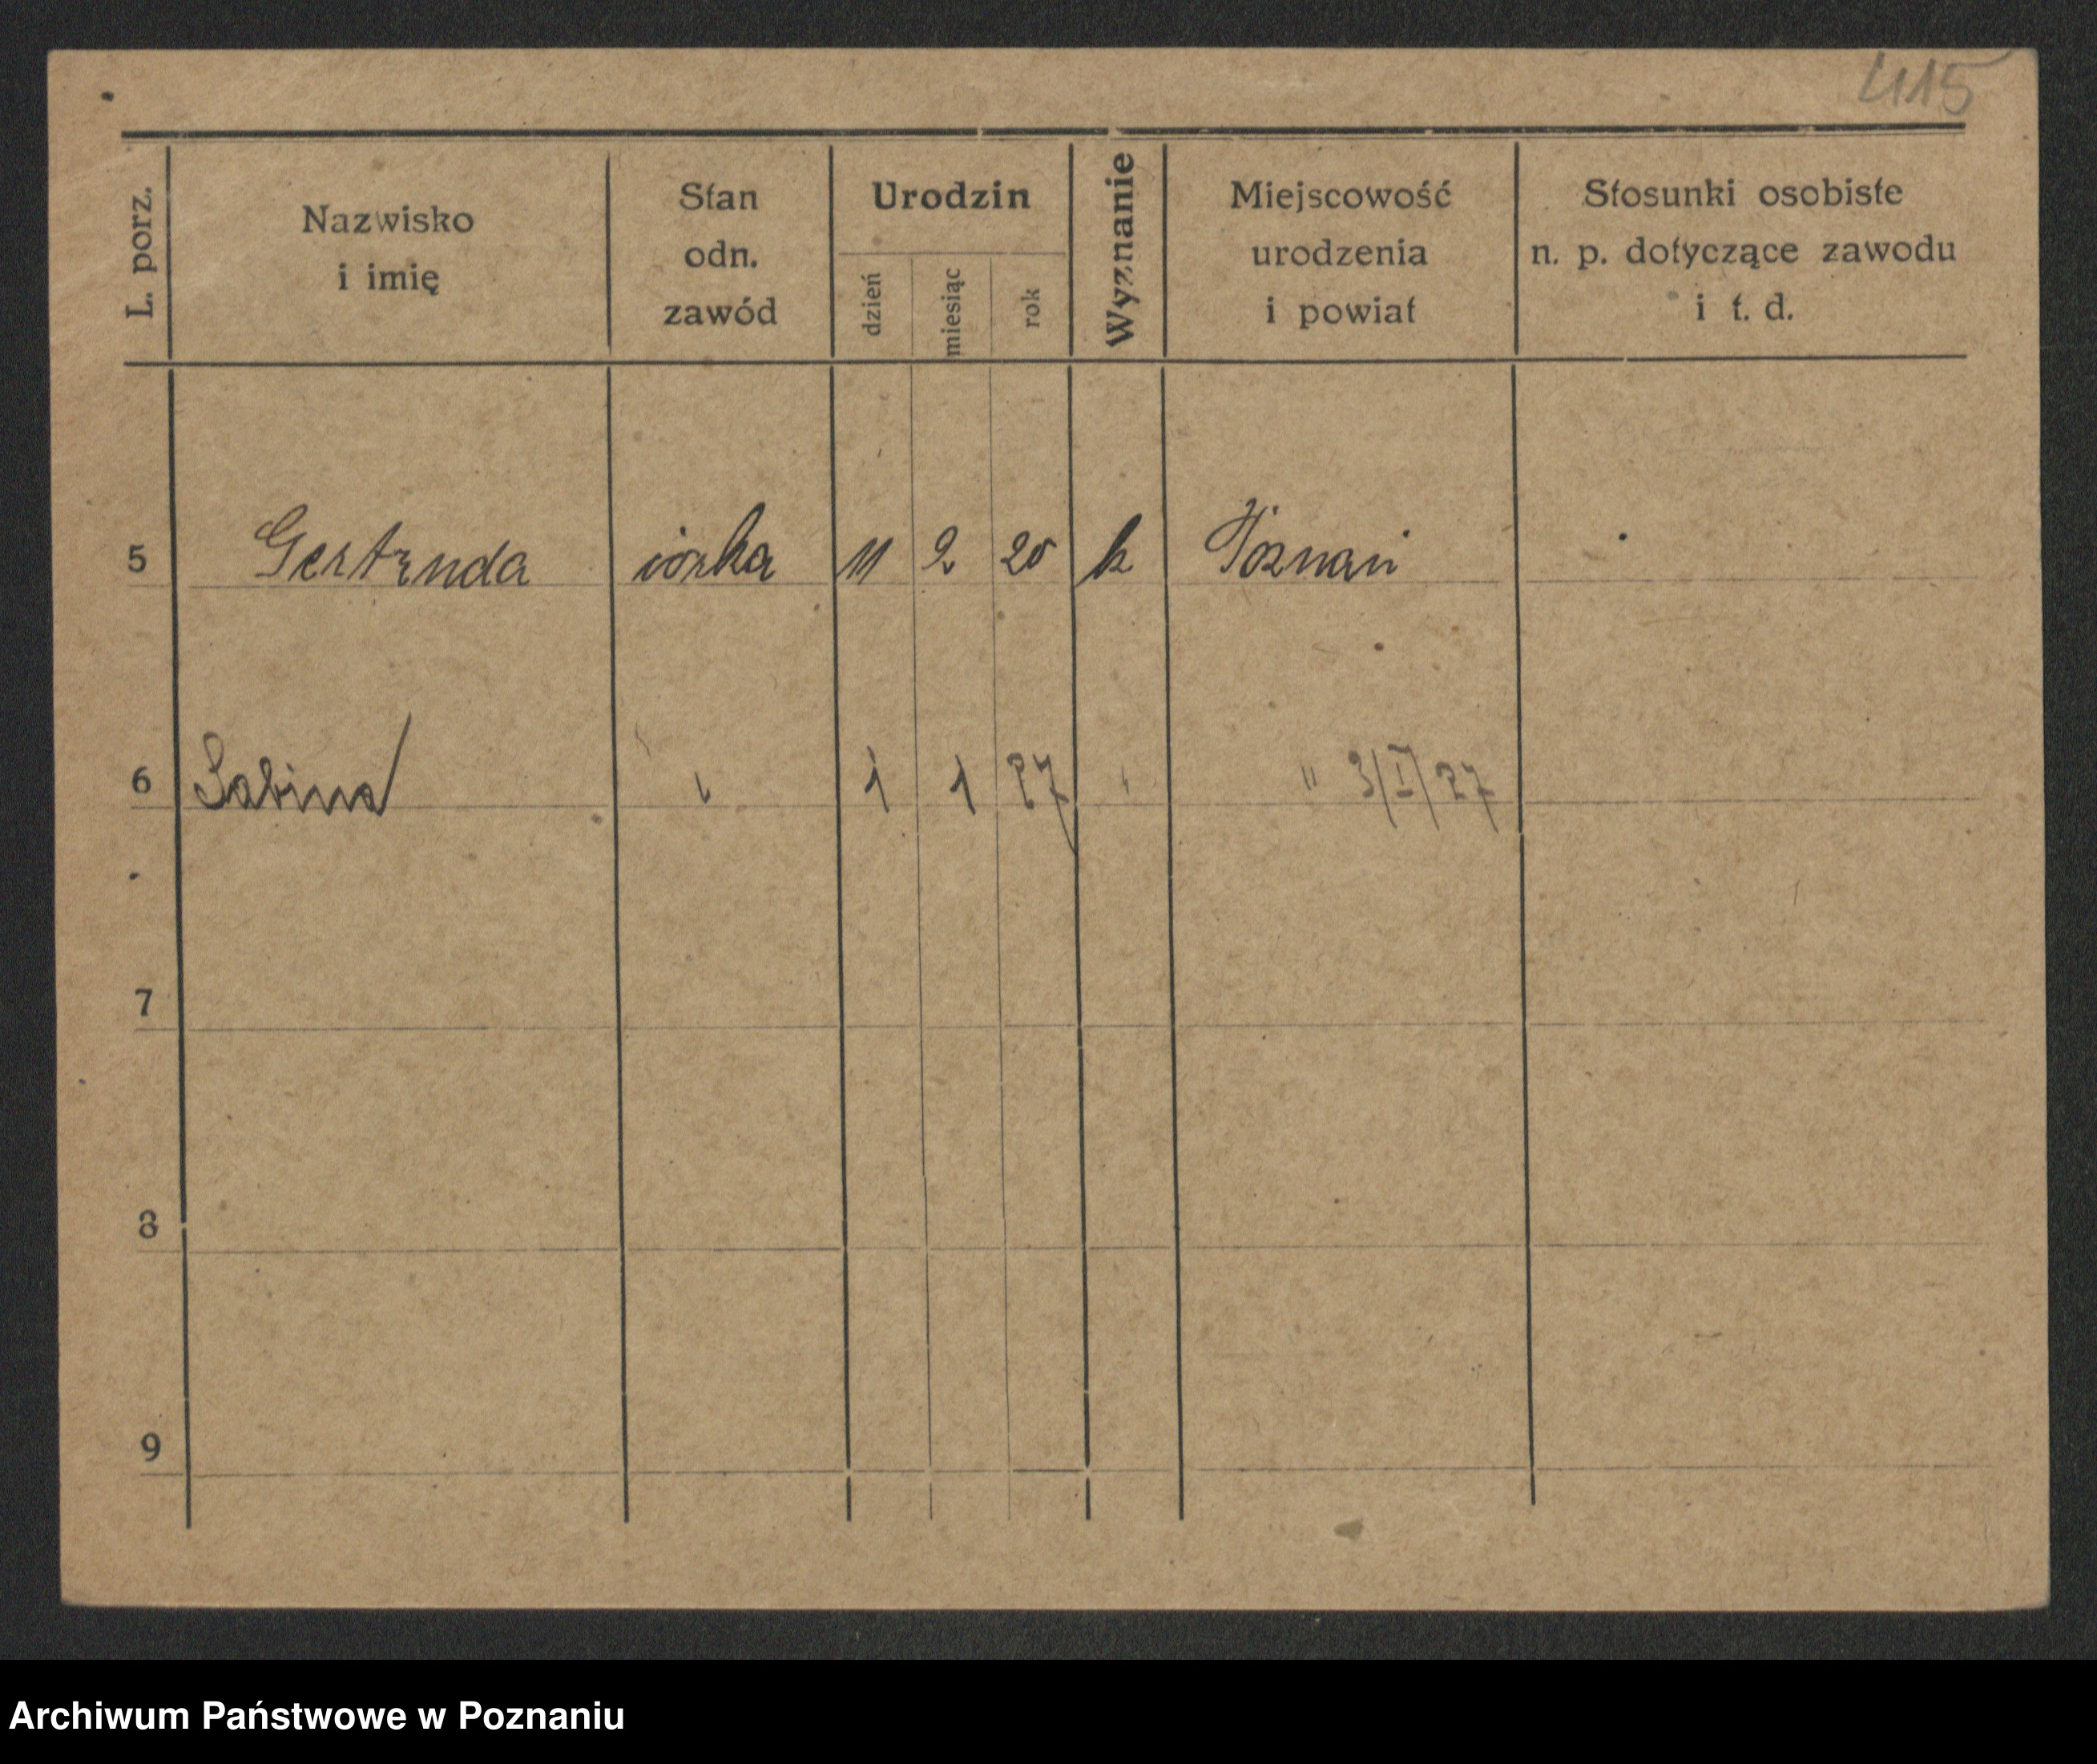 415
L. porz.
Nazwisko
i imię
Stan
odn.
zawód
Urodzin
dzień
miesiąc
rok
Wyznanie
Miejscowość
urodzenia
i powiat
Stosunki osobiste
n. p. dotyczące zawodu
i t. d.
5 Gertruda córka 11 2 20 k Poznań
6 Sabina " 1 1 27 " " 3/I/27
7
8
9
Archiwum Państwowe w Poznaniu